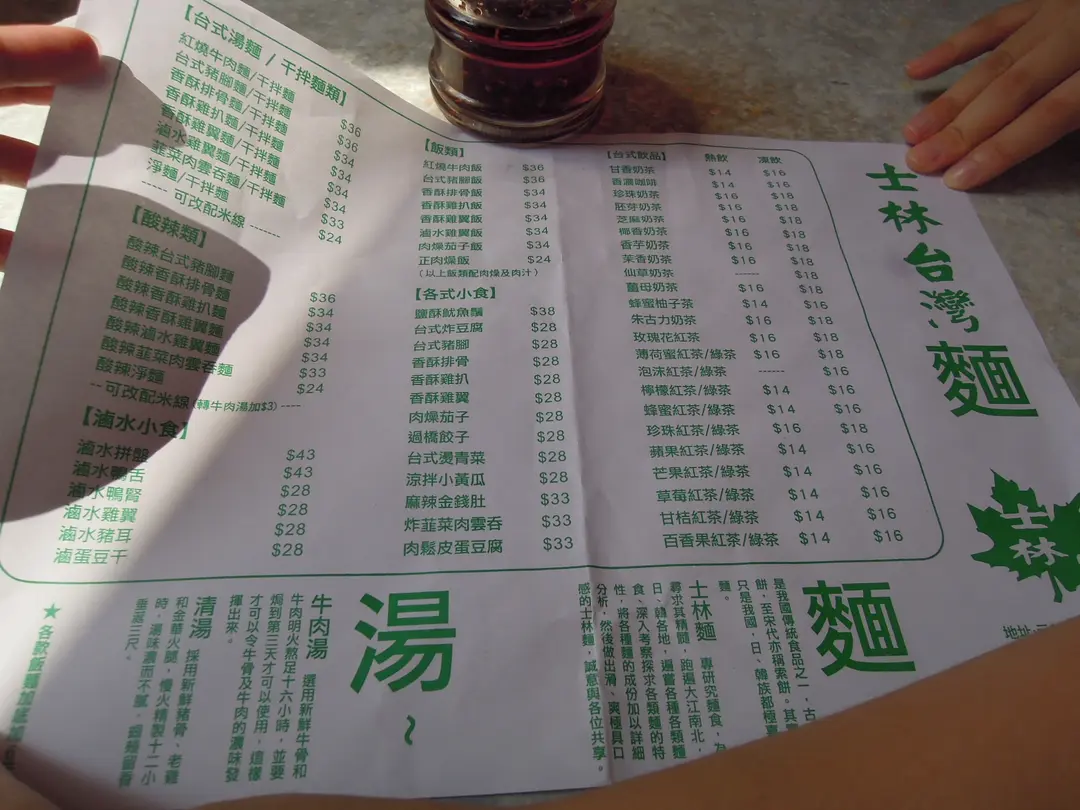 【台式湯麵 / 干拌麵類】
紅燒牛肉麵/干拌麵 $36
台式豬腳麵/干拌麵 $36
香酥排骨麵/干拌麵 $34
香酥雞扒麵/干拌麵 $34
香酥雞翼麵/干拌麵 $34
滷水雞翼麵/干拌麵 $34
韮菜肉雲吞麵/干拌麵 $33
淨麵/干拌麵 $24
----- 可改配米線 -------
【酸辣類】
酸辣台式豬腳麵 $36
酸辣香酥排骨麵 $34
酸辣香酥雞扒麵 $34
酸辣香酥雞翼麵 $34
酸辣滷水雞翼麵 $34
酸辣韮菜肉雲吞麵 $33
酸辣淨麵 $24
--可改配米線(轉牛肉湯加$3) ----
【滷水小食】
滷水拼盤 $43
滷水鴨舌 $43
滷水鴨腎 $28
滷水雞翼 $28
滷水豬耳 $28
滷蛋豆干 $28
【飯類】
紅燒牛肉飯 $36
台式豬腳飯 $36
香酥排骨飯 $34
香酥雞扒飯 $34
香酥雞翼飯 $34
滷水雞翼飯 $34
肉燥茄子飯 $34
正肉燥飯 $24
(以上飯類配肉燥及肉汁)
【各式小食】
鹽酥魷魚鬚 $38
台式炸豆腐 $28
台式豬腳 $28
香酥排骨 $28
香酥雞扒 $28
香酥雞翼 $28
肉燥茄子 $28
過橋餃子 $28
台式燙青菜 $28
涼拌小黃瓜 $28
麻辣金錢肚 $33
炸韮菜肉雲吞 $33
肉鬆皮蛋豆腐 $33
【台式飲品】 熱飲 凍飲
甘香奶茶 $14 $16
香濃咖啡 $14 $16
珍珠奶茶 $16 $18
胚芽奶茶 $16 $18
芝麻奶茶 $16 $18
椰香奶茶 $16 $18
香芋奶茶 $16 $18
茉香奶茶 $16 $18
仙草奶茶 ------ $18
薑母奶茶 $16 $18
蜂蜜柚子茶 $14 $16
朱古力奶茶 $16 $18
玫瑰花紅茶 $16 $18
薄荷蜜紅茶/綠茶 $16 $18
泡沫紅茶/綠茶 ------ $16
檸檬紅茶/綠茶 $14 $16
蜂蜜紅茶/綠茶 $14 $16
珍珠紅茶/綠茶 $16 $18
蘋果紅茶/綠茶 $14 $16
芒果紅茶/綠茶 $14 $16
草莓紅茶/綠茶 $14 $16
甘桔紅茶/綠茶 $14 $16
百香果紅茶/綠茶 $14 $16
士林台灣麵
士林
地址
麵
是我國傳統食品之一，古
餅，至宋代亦稱索餅。其
只是我國，日、韓族都極
麵。
士林麵 專研究麵食，為
尋求其精髓，跑遍大江南北，
日、韓各地，遍嘗各種各類麵
食、深入考察探求各類麵的特
性，將各種麵的成份加以詳細
分析，然後做出滑、爽極具口
感的士林麵，誠意與各位共享。
湯~
牛肉湯 選用新鮮牛骨和
牛肉明火熬足十六小時，並要
焗到第三天才可以使用，這樣
才可以令牛骨及牛肉的濃味發
揮出來。
清湯 採用新鮮豬骨、老雞
和金華火腿，慢火精製十二小
時，湯味濃而不膩，細麵留香
垂涎三尺。
★各款飯麵加底加